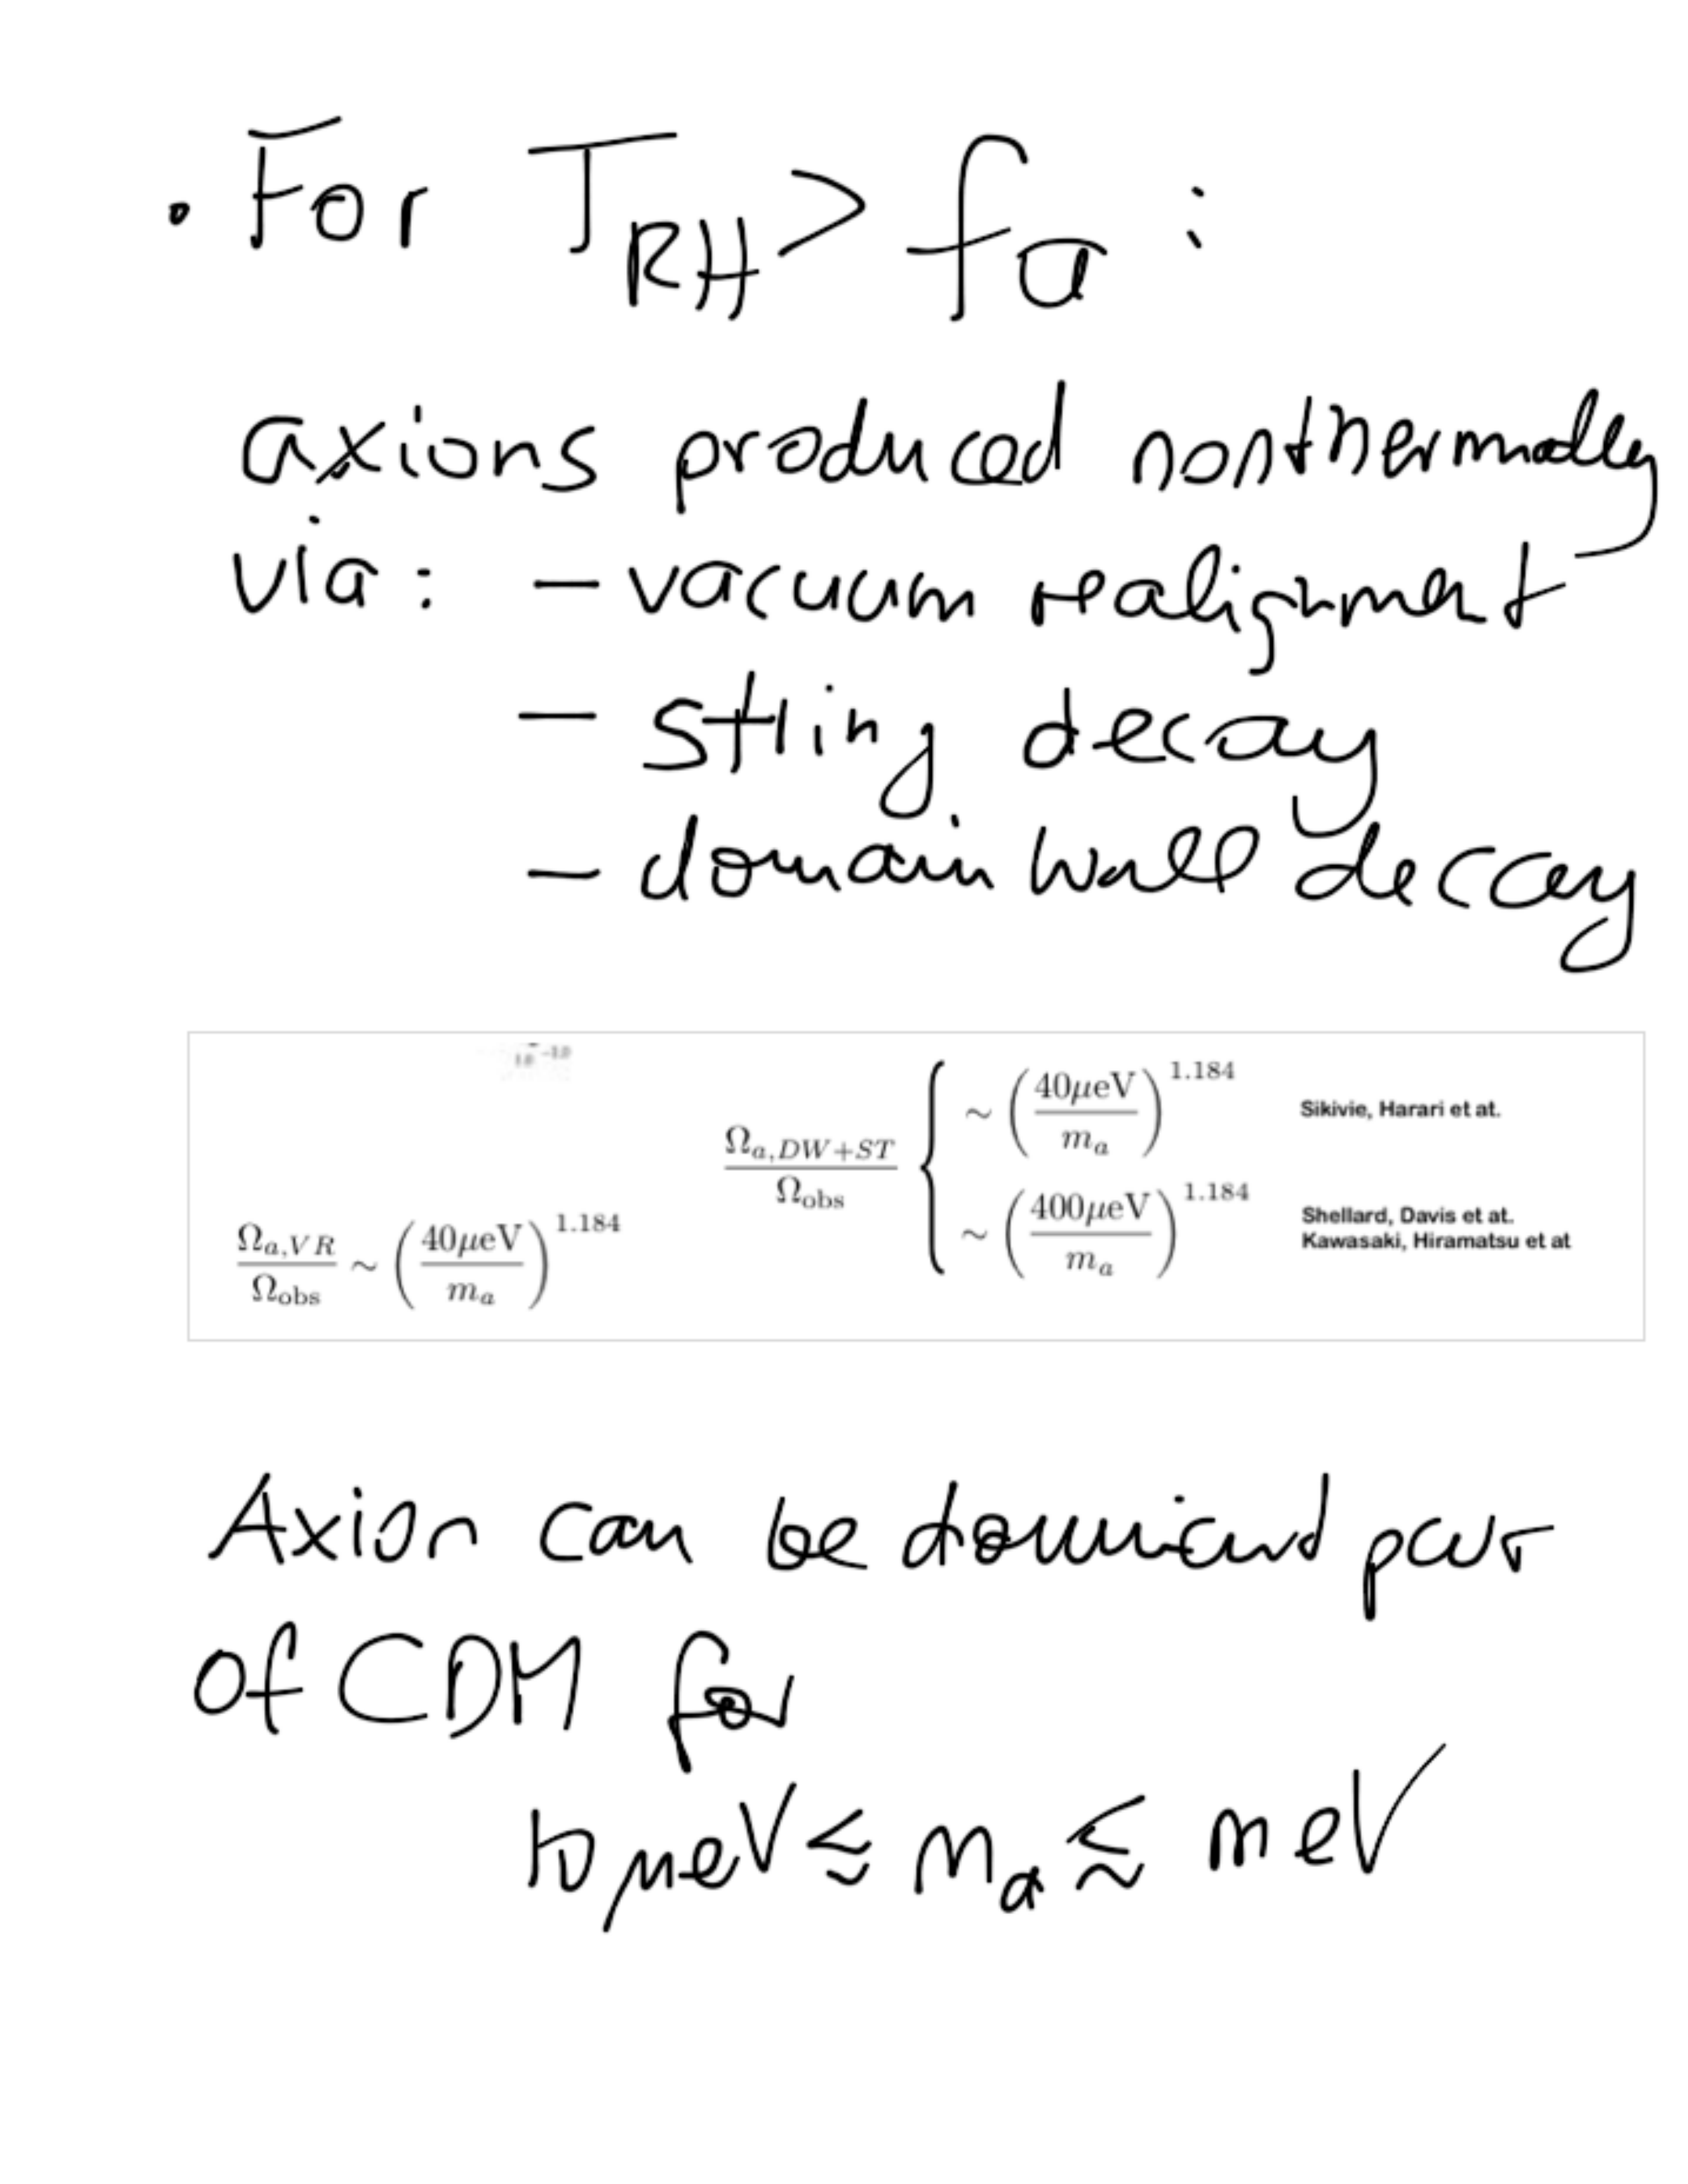 • For T_RH > f_a :
axions produced nonthermally
via : – vacuum realignment
– string decay
– domain wall decay
1.0 −1.0
Ω_{a,VR} / Ω_obs ∼ (40μeV / m_a)^1.184
Ω_{a,DW+ST} / Ω_obs {
∼ (40μeV / m_a)^1.184 Sikivie, Harari et at.
∼ (400μeV / m_a)^1.184 Shellard, Davis et at.
Kawasaki, Hiramatsu et at
Axion can be dominant part
of CDM for
10 μeV ≲ m_a ≲ meV